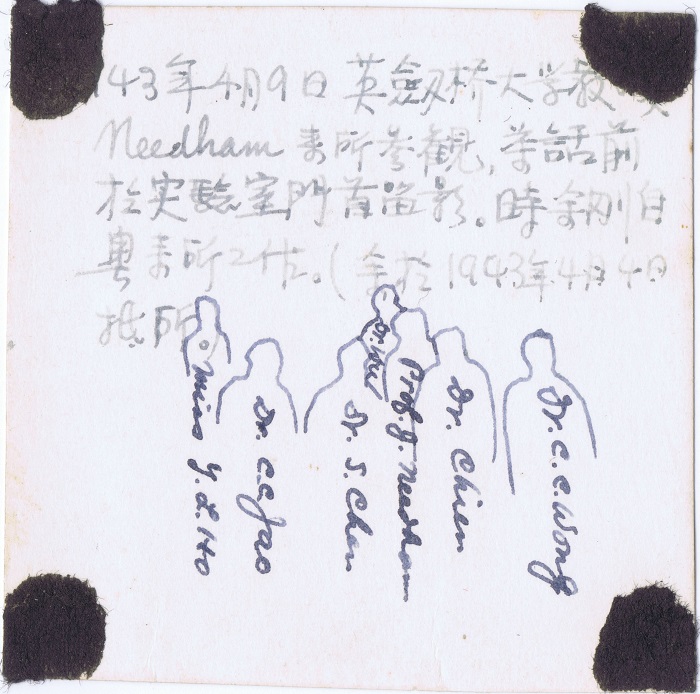 943年4月9日英劍桥大学教
Needham 来所参観,茶話前
於実驗室門首留影。時余刚自
粵来所工作。(余於1943年4月4日
抵所)
Miss Y. L. Ho
Dr. C. C. Jao
Dr. S. Chen
Dr. Wu
Prof. J. Needham
Dr. Chien
Dr. C. C. Wong